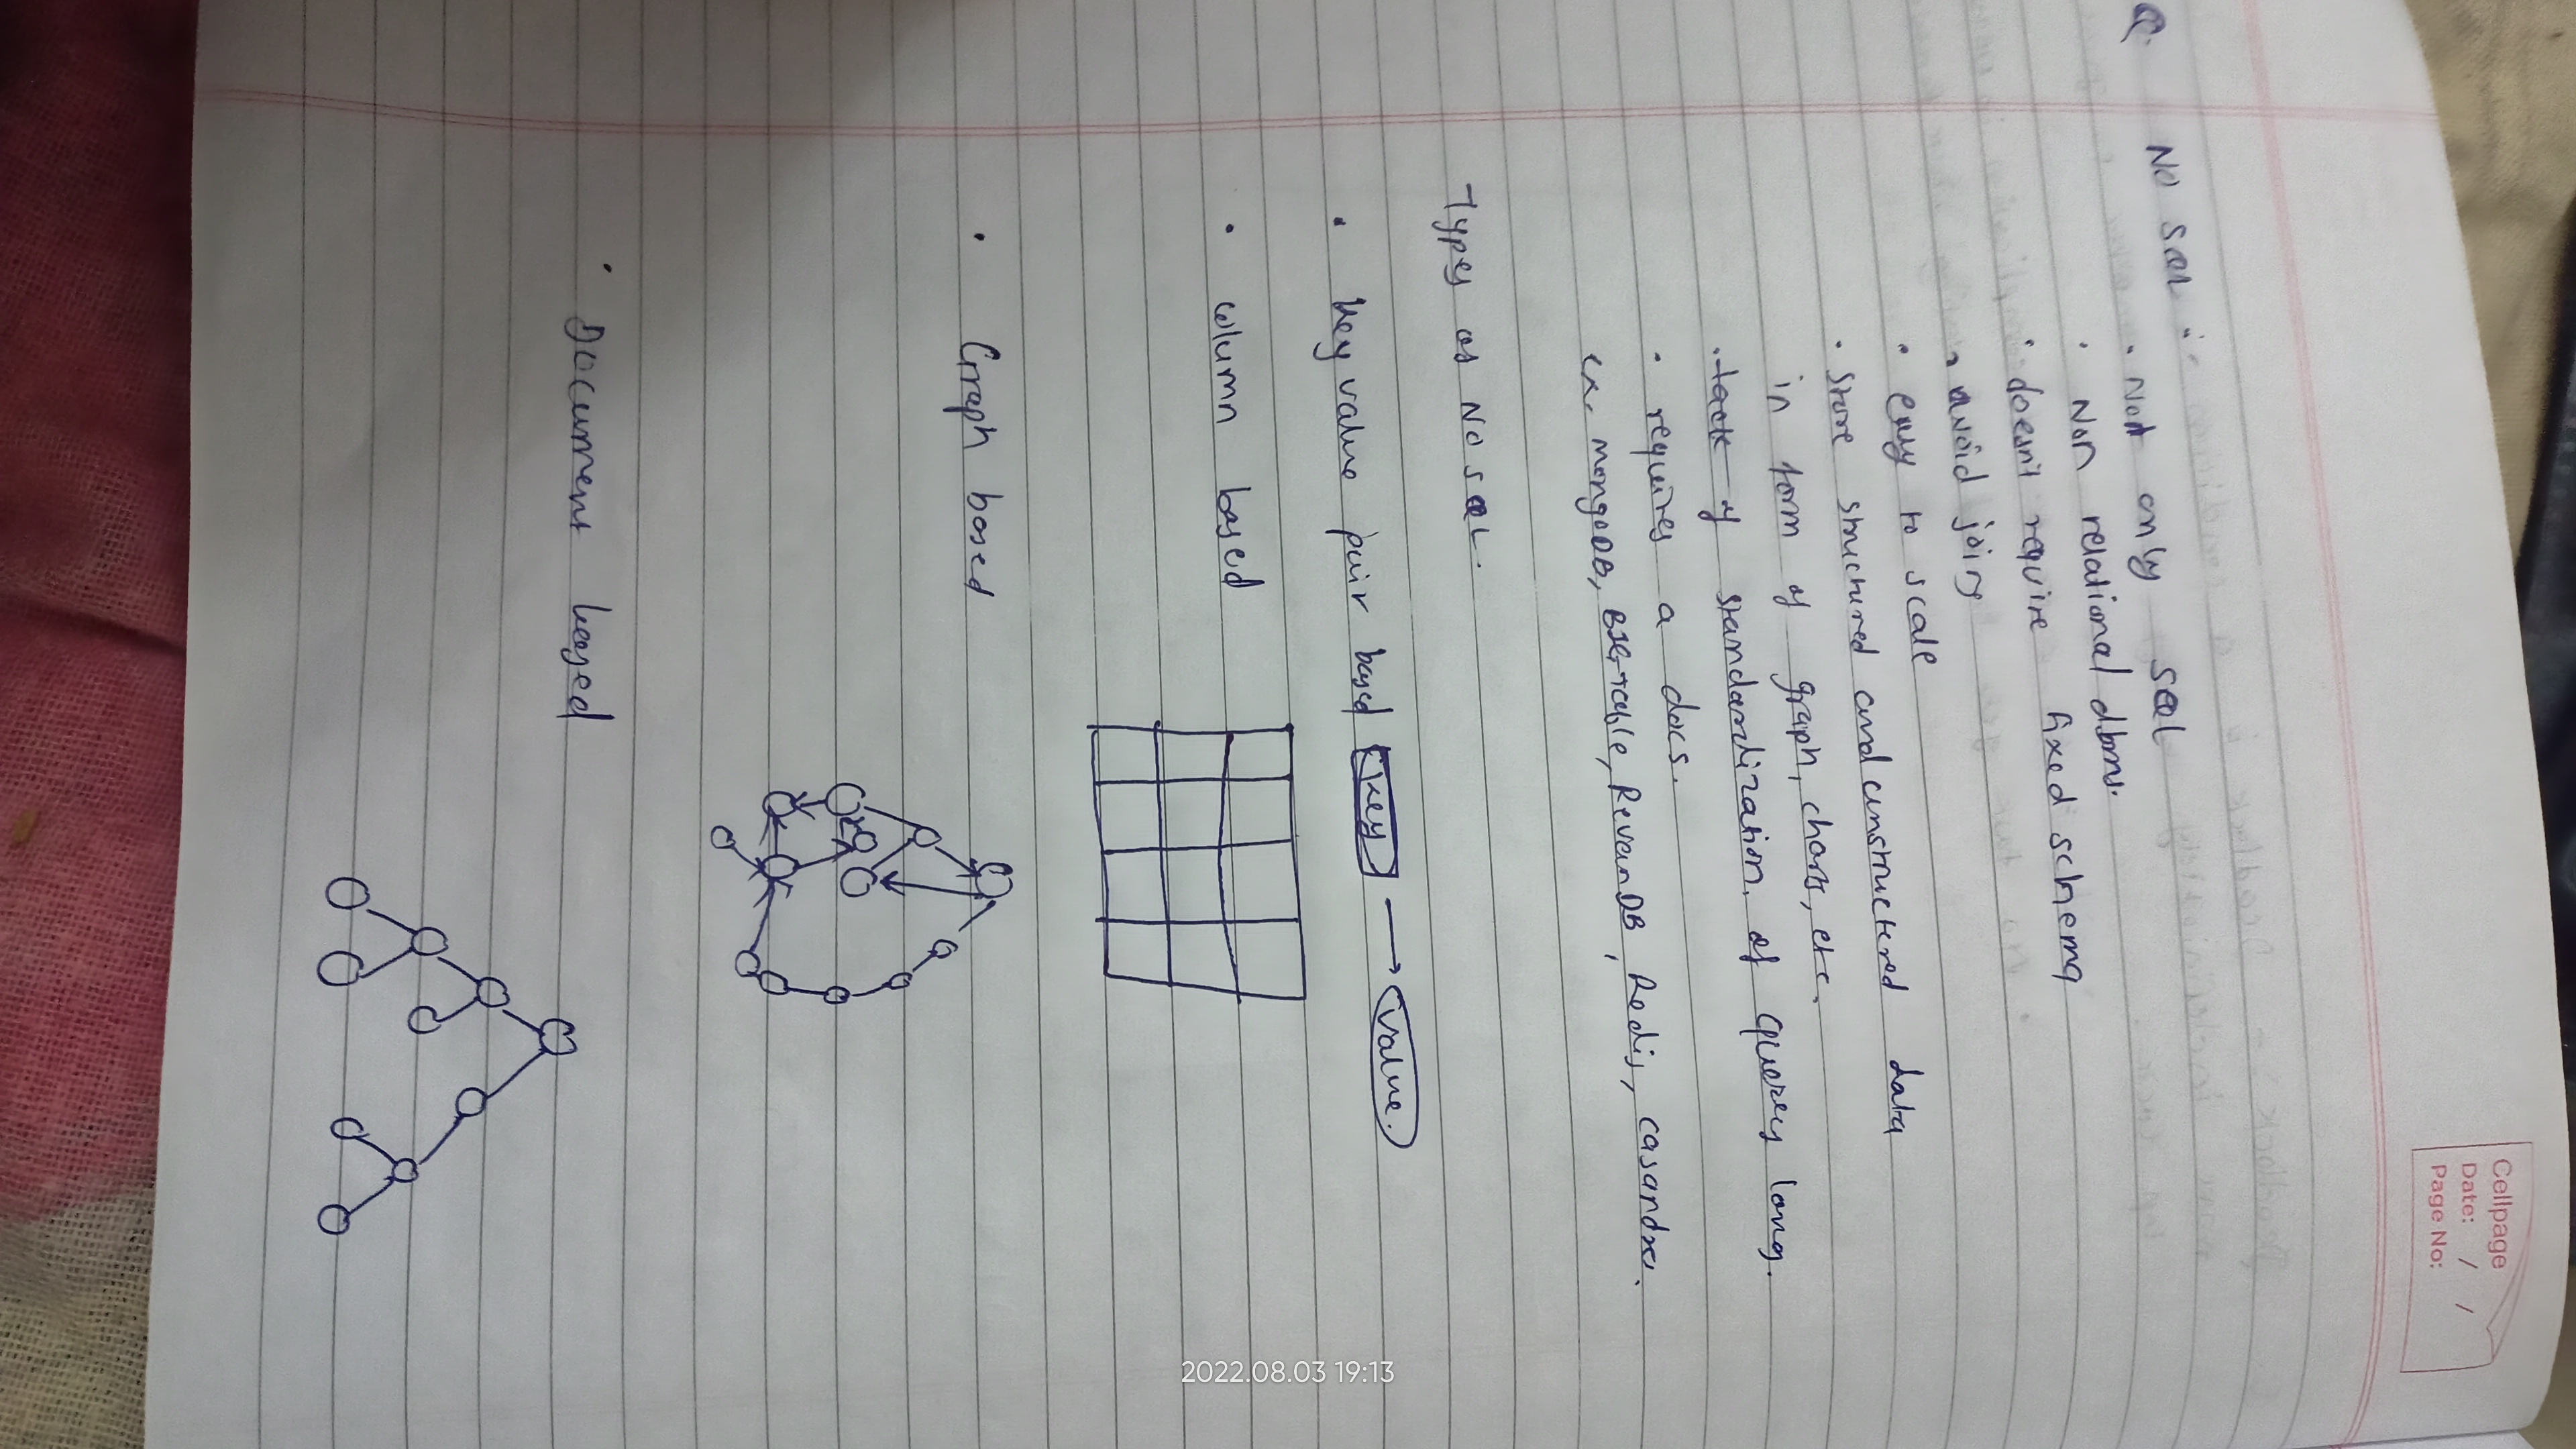 Cellpage
Date: / /
Page No:
Q. No SQL :-
• Not only SQL
• Non relational dbms.
• doesn't require fixed schema
• avoid joins
• easy to scale
• Store structured and unstructured data
in form of graph, chars, etc.
• lack of standardization of queries lang.
• requires a docs.
ex. mongoDB, BIG-Table, RevanDB, Redis, casandra.
Types of No SQL.
• key value pair based key → value.
• column based
• Graph based
• Document based
2022.08.03 19:13